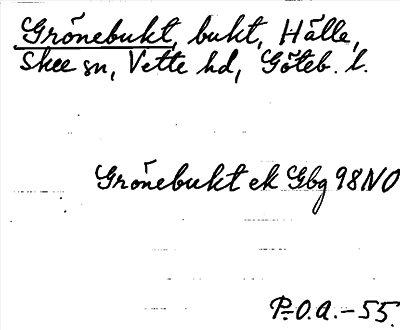 Grönebukt, bukt, Hälle,
Skee sn, Vette hd, Göteb. l.
Grönebukt ek Gbg 98 NO
P.O.A. -55.